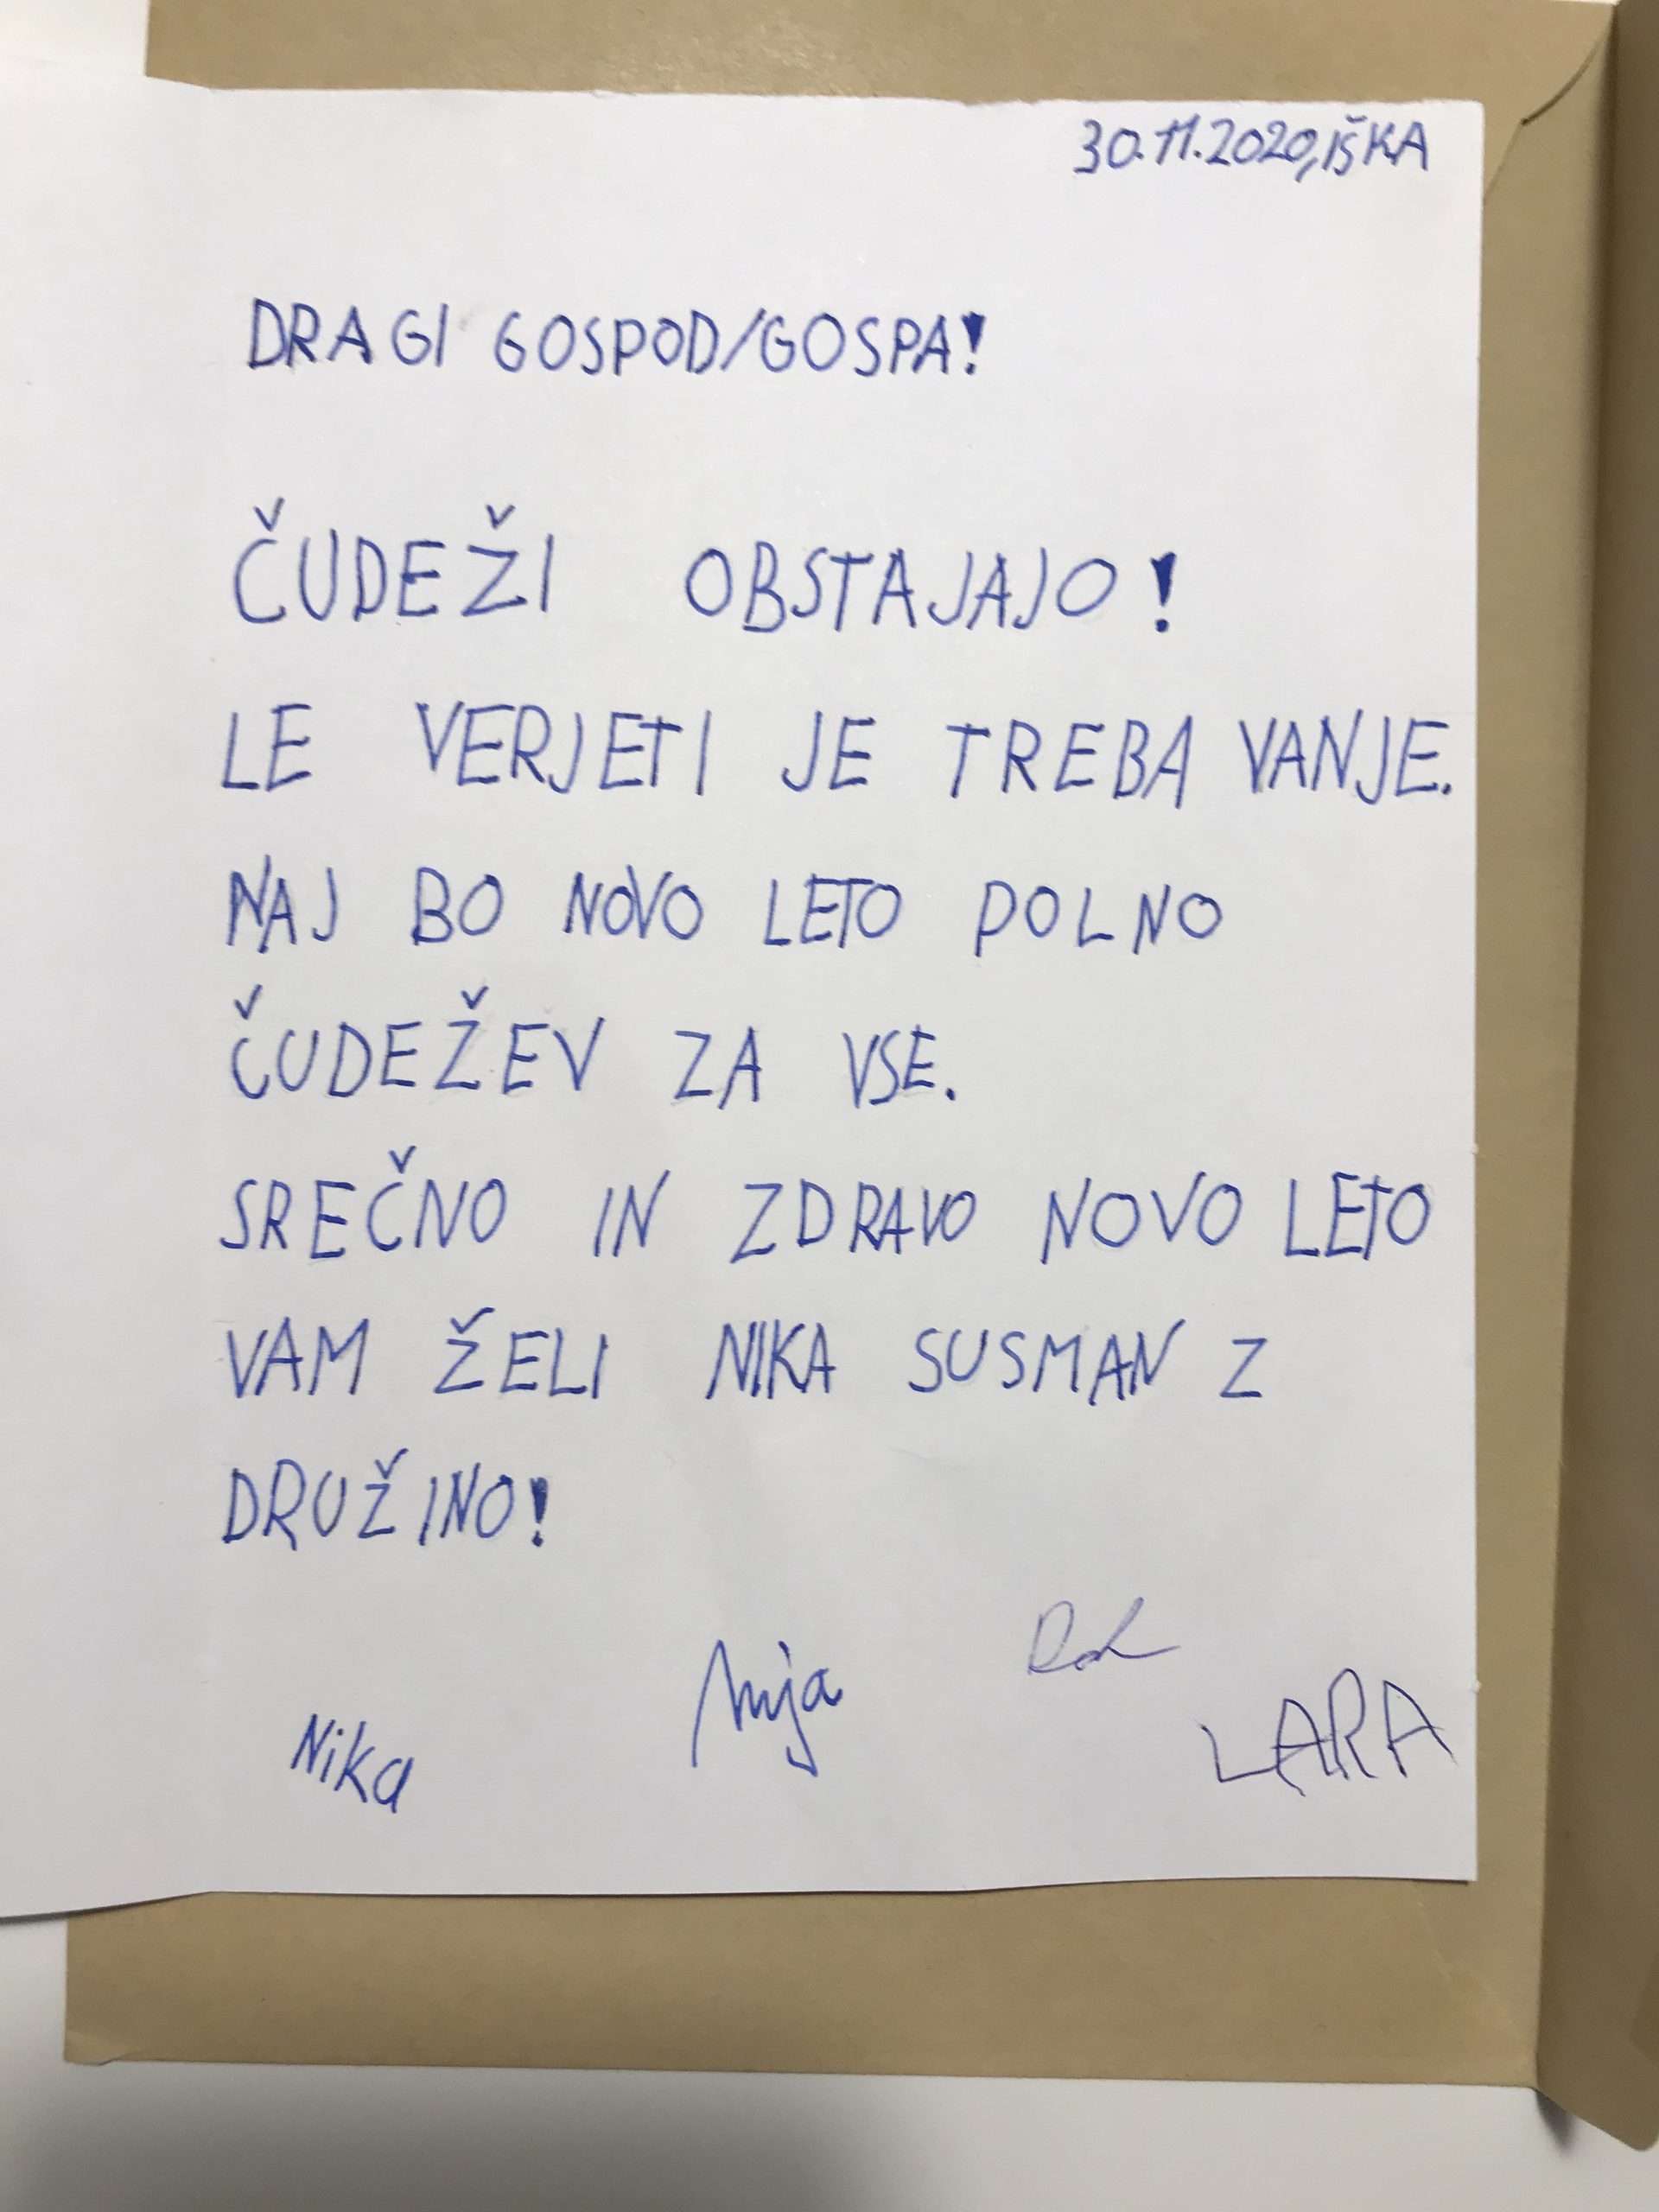 30.11.2020, IŠKA
DRAGI GOSPOD/GOSPA!
ČUDEŽI OBSTAJAJO!
LE VERJETI JE TREBA VANJE.
NAJ BO NOVO LETO POLNO
ČUDEŽEV ZA VSE.
SREČNO IN ZDRAVO NOVO LETO
VAM ŽELI NIKA SUSMAN Z
DRUŽINO!
Nika
LARA